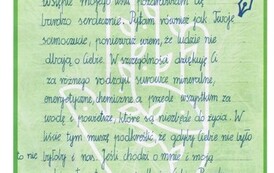 wstępie mojego listu pozdrawiam Cię
bardzo serdecznie. Pytam również jak Twoje
samopoczucie, ponieważ wiem, że ludzie nie
dbają o Ciebie. W szczególności dziękuję Ci
za różnego rodzaju surowce mineralne,
energetyczne, chemiczne a przede wszystkim za
wodę i powietrze, które są niezbędne do życia. W
liście tym muszę podkreślić, że gdyby Ciebie nie było
to nie byłoby i nas. Jeśli chodzi o mnie i moją